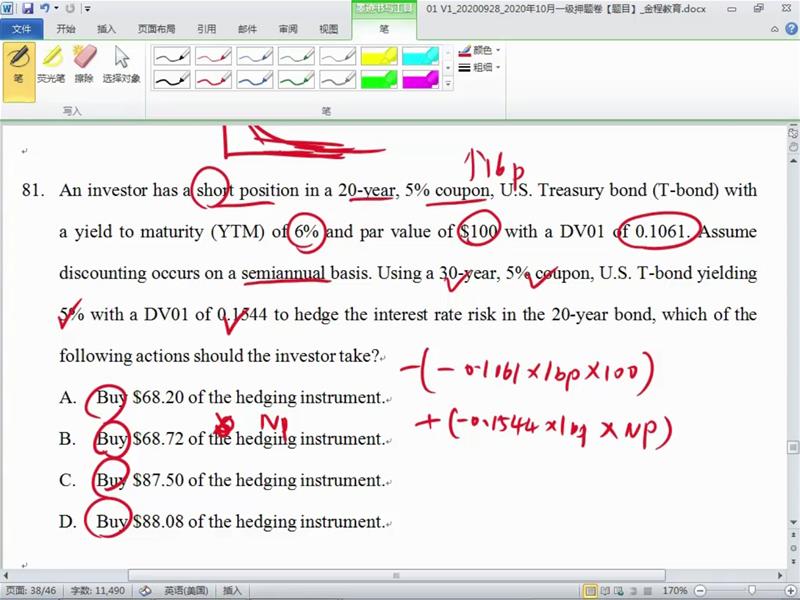 墨迹书写工具
01 V1_20200928_2020年10月一级押题卷【题目】_金程教育.docx
文件 开始 插入 页面布局 引用 邮件 审阅 视图 笔
笔 荧光笔 擦除 选择对象
颜色
粗细
写入 笔
↑1bp
81. An investor has a short position in a 20-year, 5% coupon, U.S. Treasury bond (T-bond) with
a yield to maturity (YTM) of 6% and par value of $100 with a DV01 of 0.1061. Assume
discounting occurs on a semiannual basis. Using a 30-year, 5% coupon, U.S. T-bond yielding
5% with a DV01 of 0.1544 to hedge the interest rate risk in the 20-year bond, which of the
following actions should the investor take?
-(-0.1061×1bp×100)
A. Buy $68.20 of the hedging instrument.
NP
+(-0.1544×1bp×NP)
B. Buy $68.72 of the hedging instrument.
C. Buy $87.50 of the hedging instrument.
D. Buy $88.08 of the hedging instrument.
页面: 38/46 字数: 11,490 英语(美国) 插入 170%